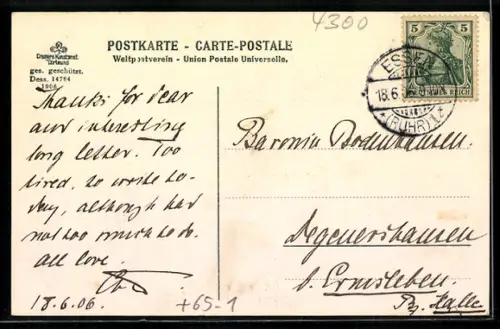 4300
POSTKARTE - CARTE-POSTALE
Weltpostverein - Union Postale Universelle.
ges. geschützt.
Dess. 14784
1906
5 5
DEUTSCHES REICH
ESSEN
18.6
*(RUHR)1*
Thanks for dear
and interesting
long letter. Too
tired, to write to-
day, although had
not too much to do.
All love.
18.6.06.
+65-1
Baronin Bodenhausen
Degenershausen
b. Ermsleben.
Bz. Halle